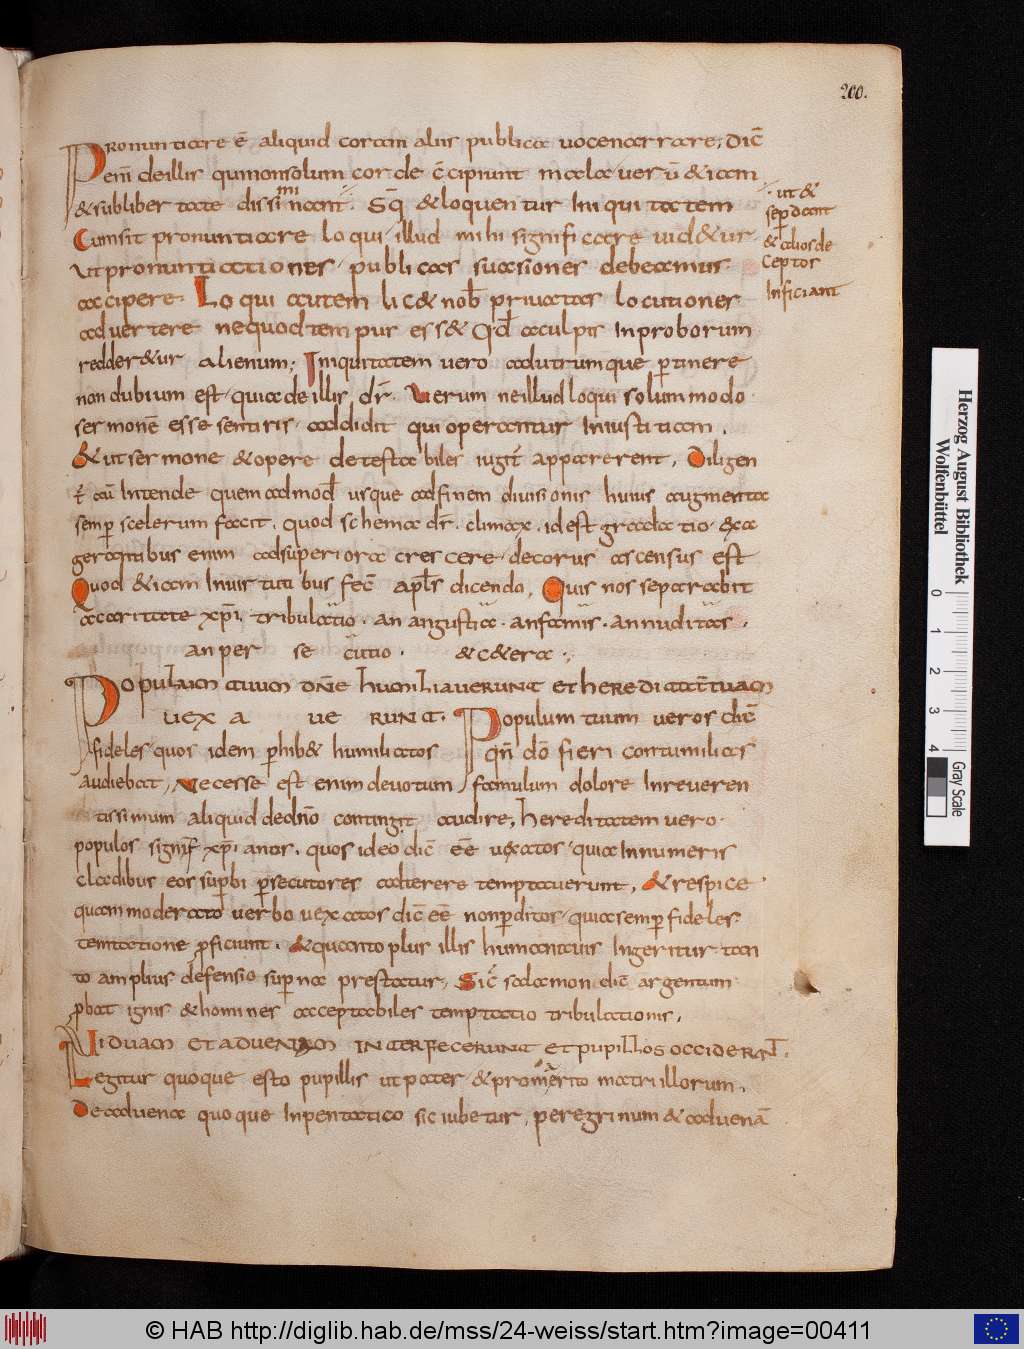 200.
Pronuntiare ē aliquid coram aliis publica uoce narrare; Dic̄
enī deillis quinonsolum corde c̄cipiunt mala uerū &iam
&subliber tate dissiminant. Sq̄ &loquentur Iniquitatem
ut&
sep dant
&aliosde
Ceptos
Inficiant
Cumsit pronuntiare loqui illud mihi significare uid&ur
Utpronuntiationes publicas suasiones debeamus
accipere. Loqui autem lic& nob̄ priuatas locutiones
aduertere nequodtempur ess& Qd̄ aculpis Inproborum
redder&ur alienum; Iniquitatem uero adutrumque ptinere
non dubium est quia de illis dr̄. Uerum neilludloqui solummodo
sermonē esse sentiris addidit qui operantur Iniustitiam.
&ut sermone &opere detestabiles iugit̄ apparerent. Diligen
t̄ aū Intende quem admod̄ usque adfinem diuisionis huius augmenta
semp scelerum facit. quod schema dr̄. climax. idest gradatio. exa
geratibus enim adsuperiora crescere decorus ascensus est
Quod &iam Inuirtutibus fec̄ apls̄ dicendo, Quis nos separabit
acaritate xp̄i. tribulatio. an angustia. anfamis. annuditas.
anper se cutio. &c&era.;
Populum tuum dn̄e humiliauerunt et hereditatē tuam
uexa ue runt. Populum tuum ueros dic̄
fideles quos idem phib& humiliatos qn̄ dō fieri contumilias
audiebat, Necesse est enim deuotum famulum dolore Inreueren
tissimum aliquid dedn̄o contingit audire; hereditatem uero
populos signif̄ xp̄i anos. quos ideo dic̄ eē uexatos quia Innumeris
cladibus eos supbi psecutores adterere temptauerunt, &respice
quam moderato uerbo uexatos dic̄ eē nonpditos quiasemp fideles
temtatione pficiunt. &quanto plus illis humanauis Ingeritur tan
to amplius defensio supna prestatur, Sic̄ salamon dic̄ argentum
pbat ignis &homines acceptabiles temptatio tribulationis.
Uiduam et aduenam interfecerunt et pupillos occiderunt.
Legitur quoque esto pupillis ut pater &promerito matri illorum.
Deaduena quoque Inpentatico sic iubetur, peregrinum &aduenā
Herzog August Bibliothek
Wolfenbüttel
0 1 2 3 4
Gray Scale
© HAB http://diglib.hab.de/mss/24-weiss/start.htm?image=00411